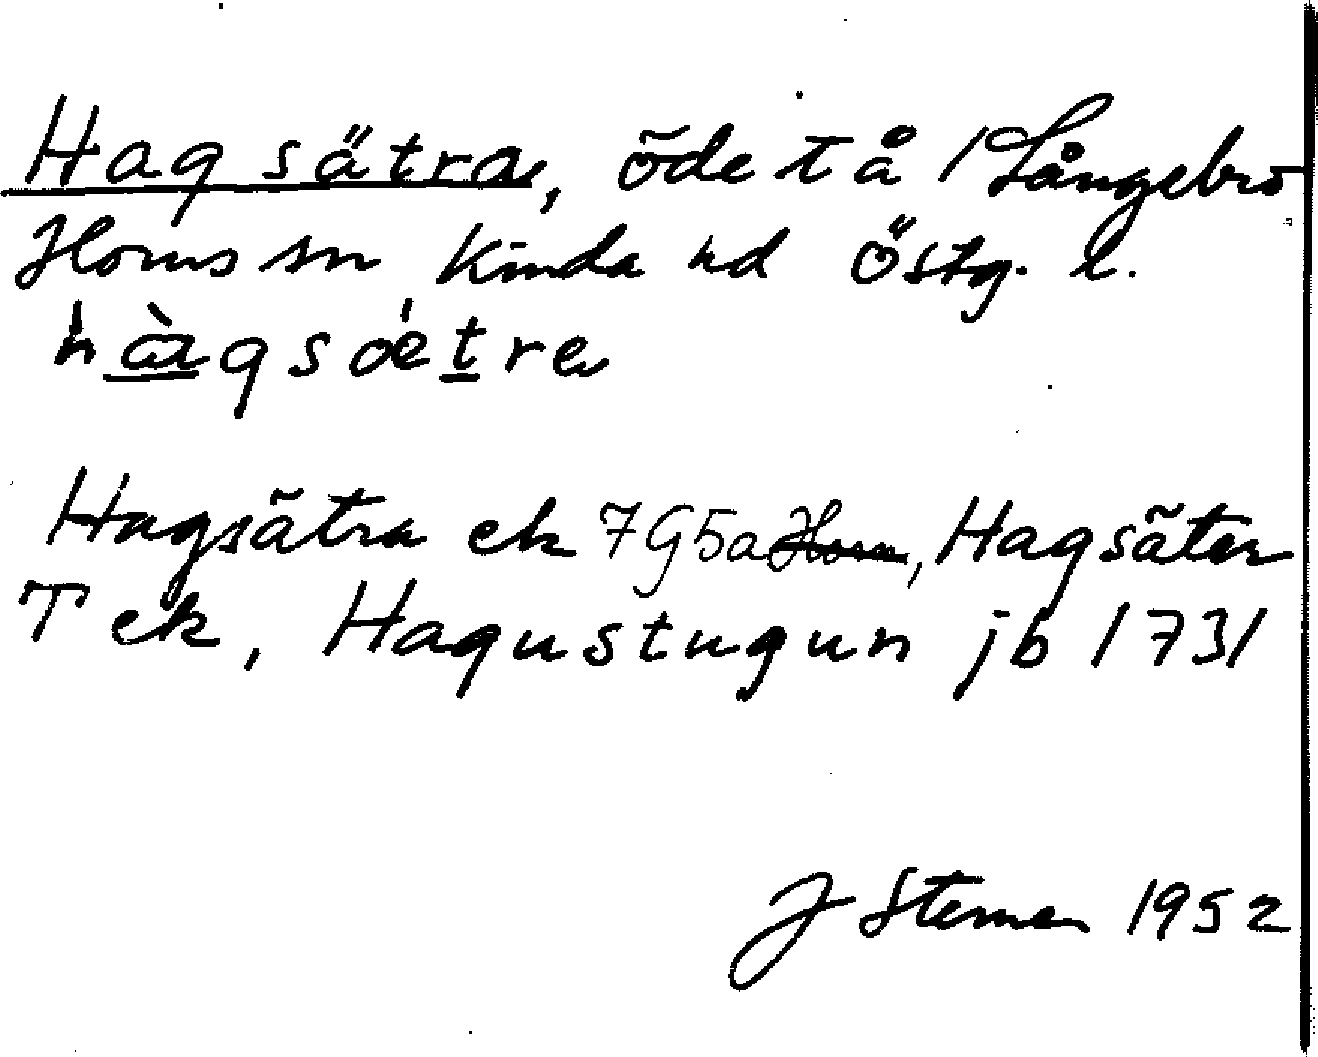 Hagsätra, öde t å 1 Långebro
Horns sn Kinda hd Östg. l.
hàgsǽtre
Hagsätra ek 7G5a Horn, Hagsäter
T ek, Hagustugun jb 1731
J Sterner 1952